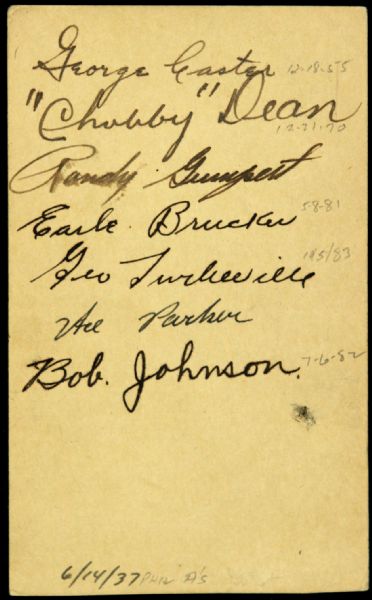 George Caster 12-18-55
"Chubby" Dean 12-21-70
Randy Gumpert
Earle Brucker 5-8-81
Geo Turbeville 10/5/83
Ace Parker
Bob. Johnson. 7-6-82
6/14/37 PHIL A's